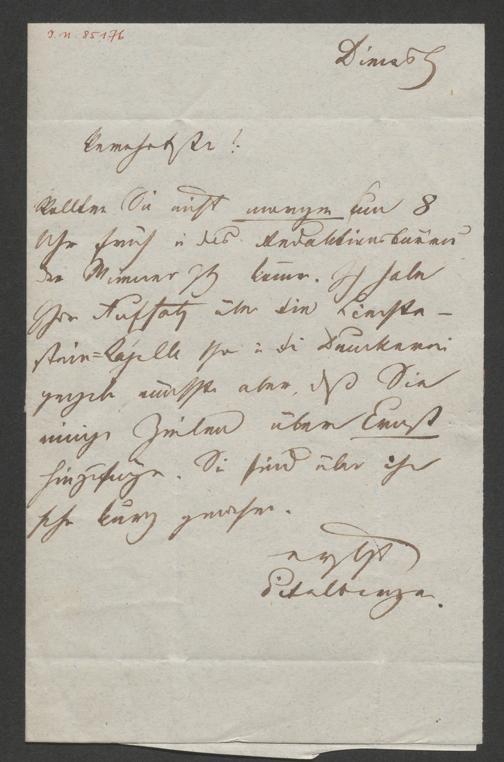 J. N. 85176
Dienstg
Verehrtester!
Wollten Sie nicht morgen um 8
Uhr früh in das Redaktionsbureau
der Wiener Ztg kommen. Ich habe
Ihren Aufsatz über die Liechten-
stein=Capelle schon in die Druckerei
gegeben wünschte aber, daß Sie
einige Zeilen über Ernst
hinzufügen. Sie sind über ihn
sehr kurz gewesen.
ergebenst
Eitelberger.